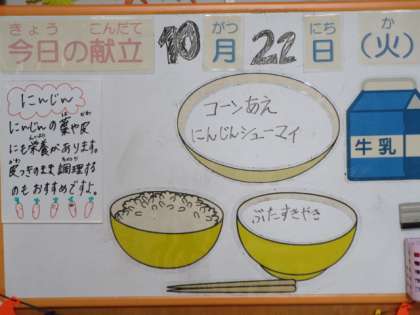 きょう こんだて がつ にち か
今日の献立 10月22日(火)
にんじん
にんじんの葉や皮
は かわ
にも栄養があります。
えいよう
皮つきのまま調理する
かわ ちょうり
のもおすすめですよ。
コーンあえ
にんじんシューマイ
牛乳
ぶたすきやき